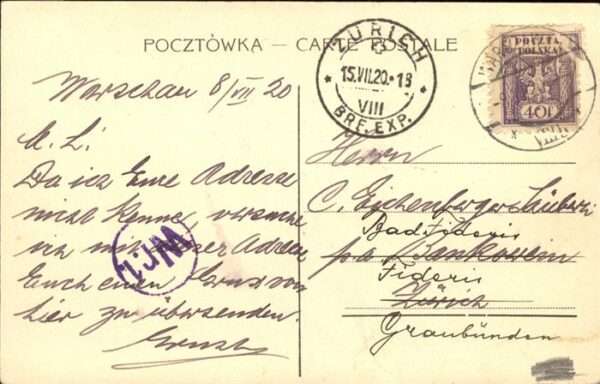 POCZTÓWKA — CARTE POSTALE
ZÜRICH
15.VII.20.-18
VIII
BRF. EXP.
POCZTA
POLSKA
40 F
Warschau 8/VII 20
M. L:
Da ich Eure Adresse
nicht kenne, versuche
ich mit dieser Adresse
Euch einen Gruss von
hier zu übersenden.
Ernst
Herrn
C. Eichenberger
Bad Fideris
p.a. Bankverein
Fideris
Zürich
Graubünden